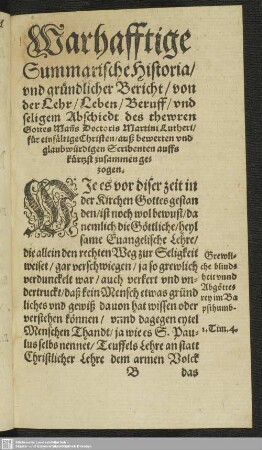 Warhafftige
Summarische Historia/
vnd gründlicher Bericht/ von
der Lehr/ Leben/ Beruff/ vnd
seligem Abschiedt des thewren
Gottes Mañs Doctoris Martini Lutheri/
für einfältige Christen/ auß bewerten vnd
glaubwürdigen Scribenten auffs
kürtzst zusammen ge⸗
zogen.
WJe es vor diser zeit in
der Kirchen Gottes gestan
den/ ist noch wol bewust/ da
nemlich die Göttliche/ heyl
same Euangelische Lehre/
die allein den rechten Weg zur Seligkeit
weiset/ gar verschwiegen/ ja so grewlich
verdunckelt war/ auch verkert vnd vn⸗
dertruckt/ daß kein Mensch etwas gründ
liches vnd gewiß dauon hat wissen oder
verstehen können/ vnnd dagegen eytel
Menschen Thandt/ ja wie es S. Pau⸗
lus selbs nennet/ Teuffels Lehre an statt
Christlicher Lehre dem armen Volck
B das
Grewli⸗
che blind⸗
heit vnnd
Abgötte⸗
rey im Ba
psthumb.
1. Tim. 4.